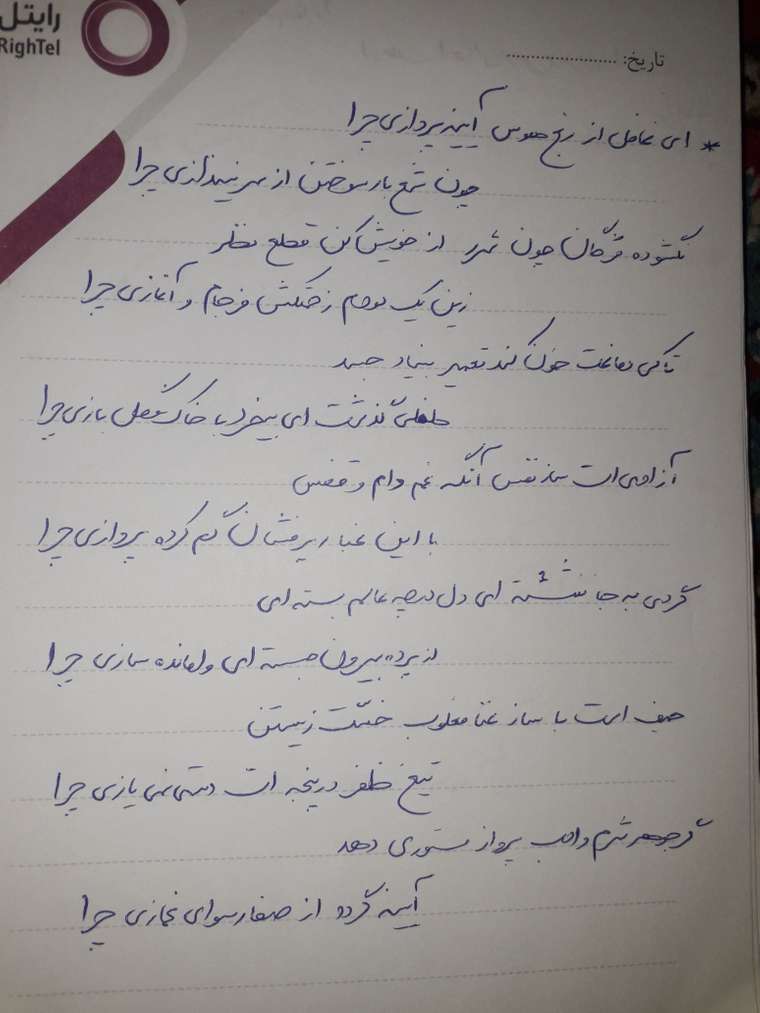 رایتل
RighTel
تاریخ: ......................
* ای غافل از رنج هوس آیینه پردازی چرا
چون شمع بار سوختن از سر نیندازی چرا
نگشوده مژگان چون شرر از خویش کن قطع نظر
زین یک دو دم زحمتکش فرجام و آغازی چرا
تا کی دماغت خون کند تعمیر بنیاد جسد
طفلی گذشت ای بیخرد با خاک و گل بازی چرا
آزادی ات ساز نفس آنگه غم دام و قفس
با این غبار پرفشان گم کرده پروازی چرا
گردی به جا ننشسته ای دل در چه عالم بسته ای
از پرده بیرون جسته ای وامانده سازی چرا
حیف است با ساز غنا مغلوب خسّت زیستن
تیغ ظفر در پنجه ات دستی نمی یازی چرا
گر جوهر شرم و ادب پرواز مستوری دهد
آیینه گردد از صفا رسوای غمازی چرا